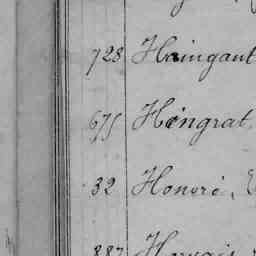 728 Hningant
675 Hingrat,
32 Honoré,
887